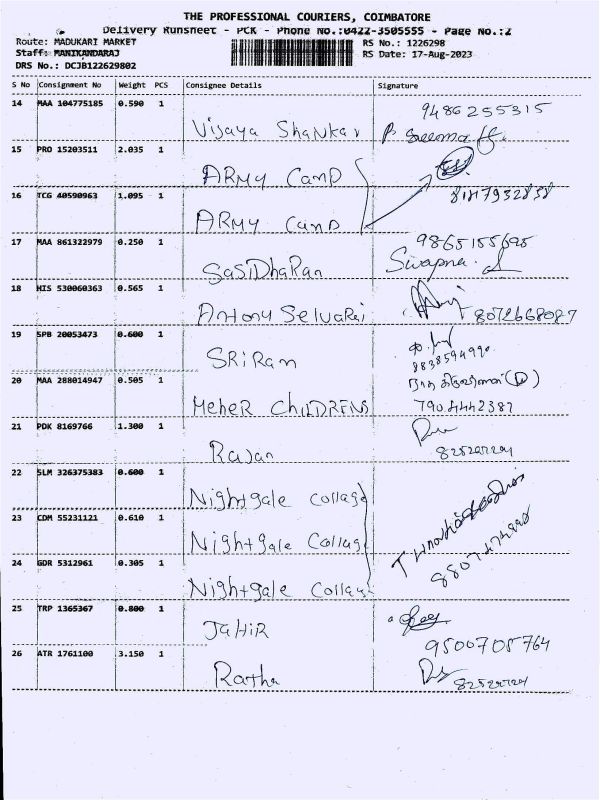 THE PROFESSIONAL COURIERS, COIMBATORE
Delivery Runsheet - PCK - Phone No.:0422-3505555 - Page No.:2
Route: MADUKARI MARKET RS No.: 1226298
Staff: MANIKANDARAJ RS Date: 17-Aug-2023
DRS No.: DCJB122629802
S No Consignment No Weight PCS Consignee Details Signature
14 MAA 104775185 0.590 1 9486255315
Vijaya Shankar
15 PRO 15203511 2.035 1
ARMY CAMP
16 TCG 40590963 1.095 1
ARMY CAMP
17 MAA 861322979 0.250 1 9865155695
SaSiDhaRan Swapna.
18 MIS 530060363 0.565 1
Antony Selvaraj 8072668087
19 SPB 20053473 0.600 1
SRiRam 8838594990
20 MAA 288014947 0.505 1
MeheR ChiLDRENS 7904442387
21 PDK 8169766 1.300 1
Rajan
22 SLM 326375383 0.600 1
Nightgale Collage
23 CDM 55231121 0.610 1
Nightgale Collage
24 GDR 5312961 0.305 1
Nightgale Collage
25 TRP 1365367 0.800 1
JahiR
9500705764
26 ATR 1761100 3.150 1
Ratha